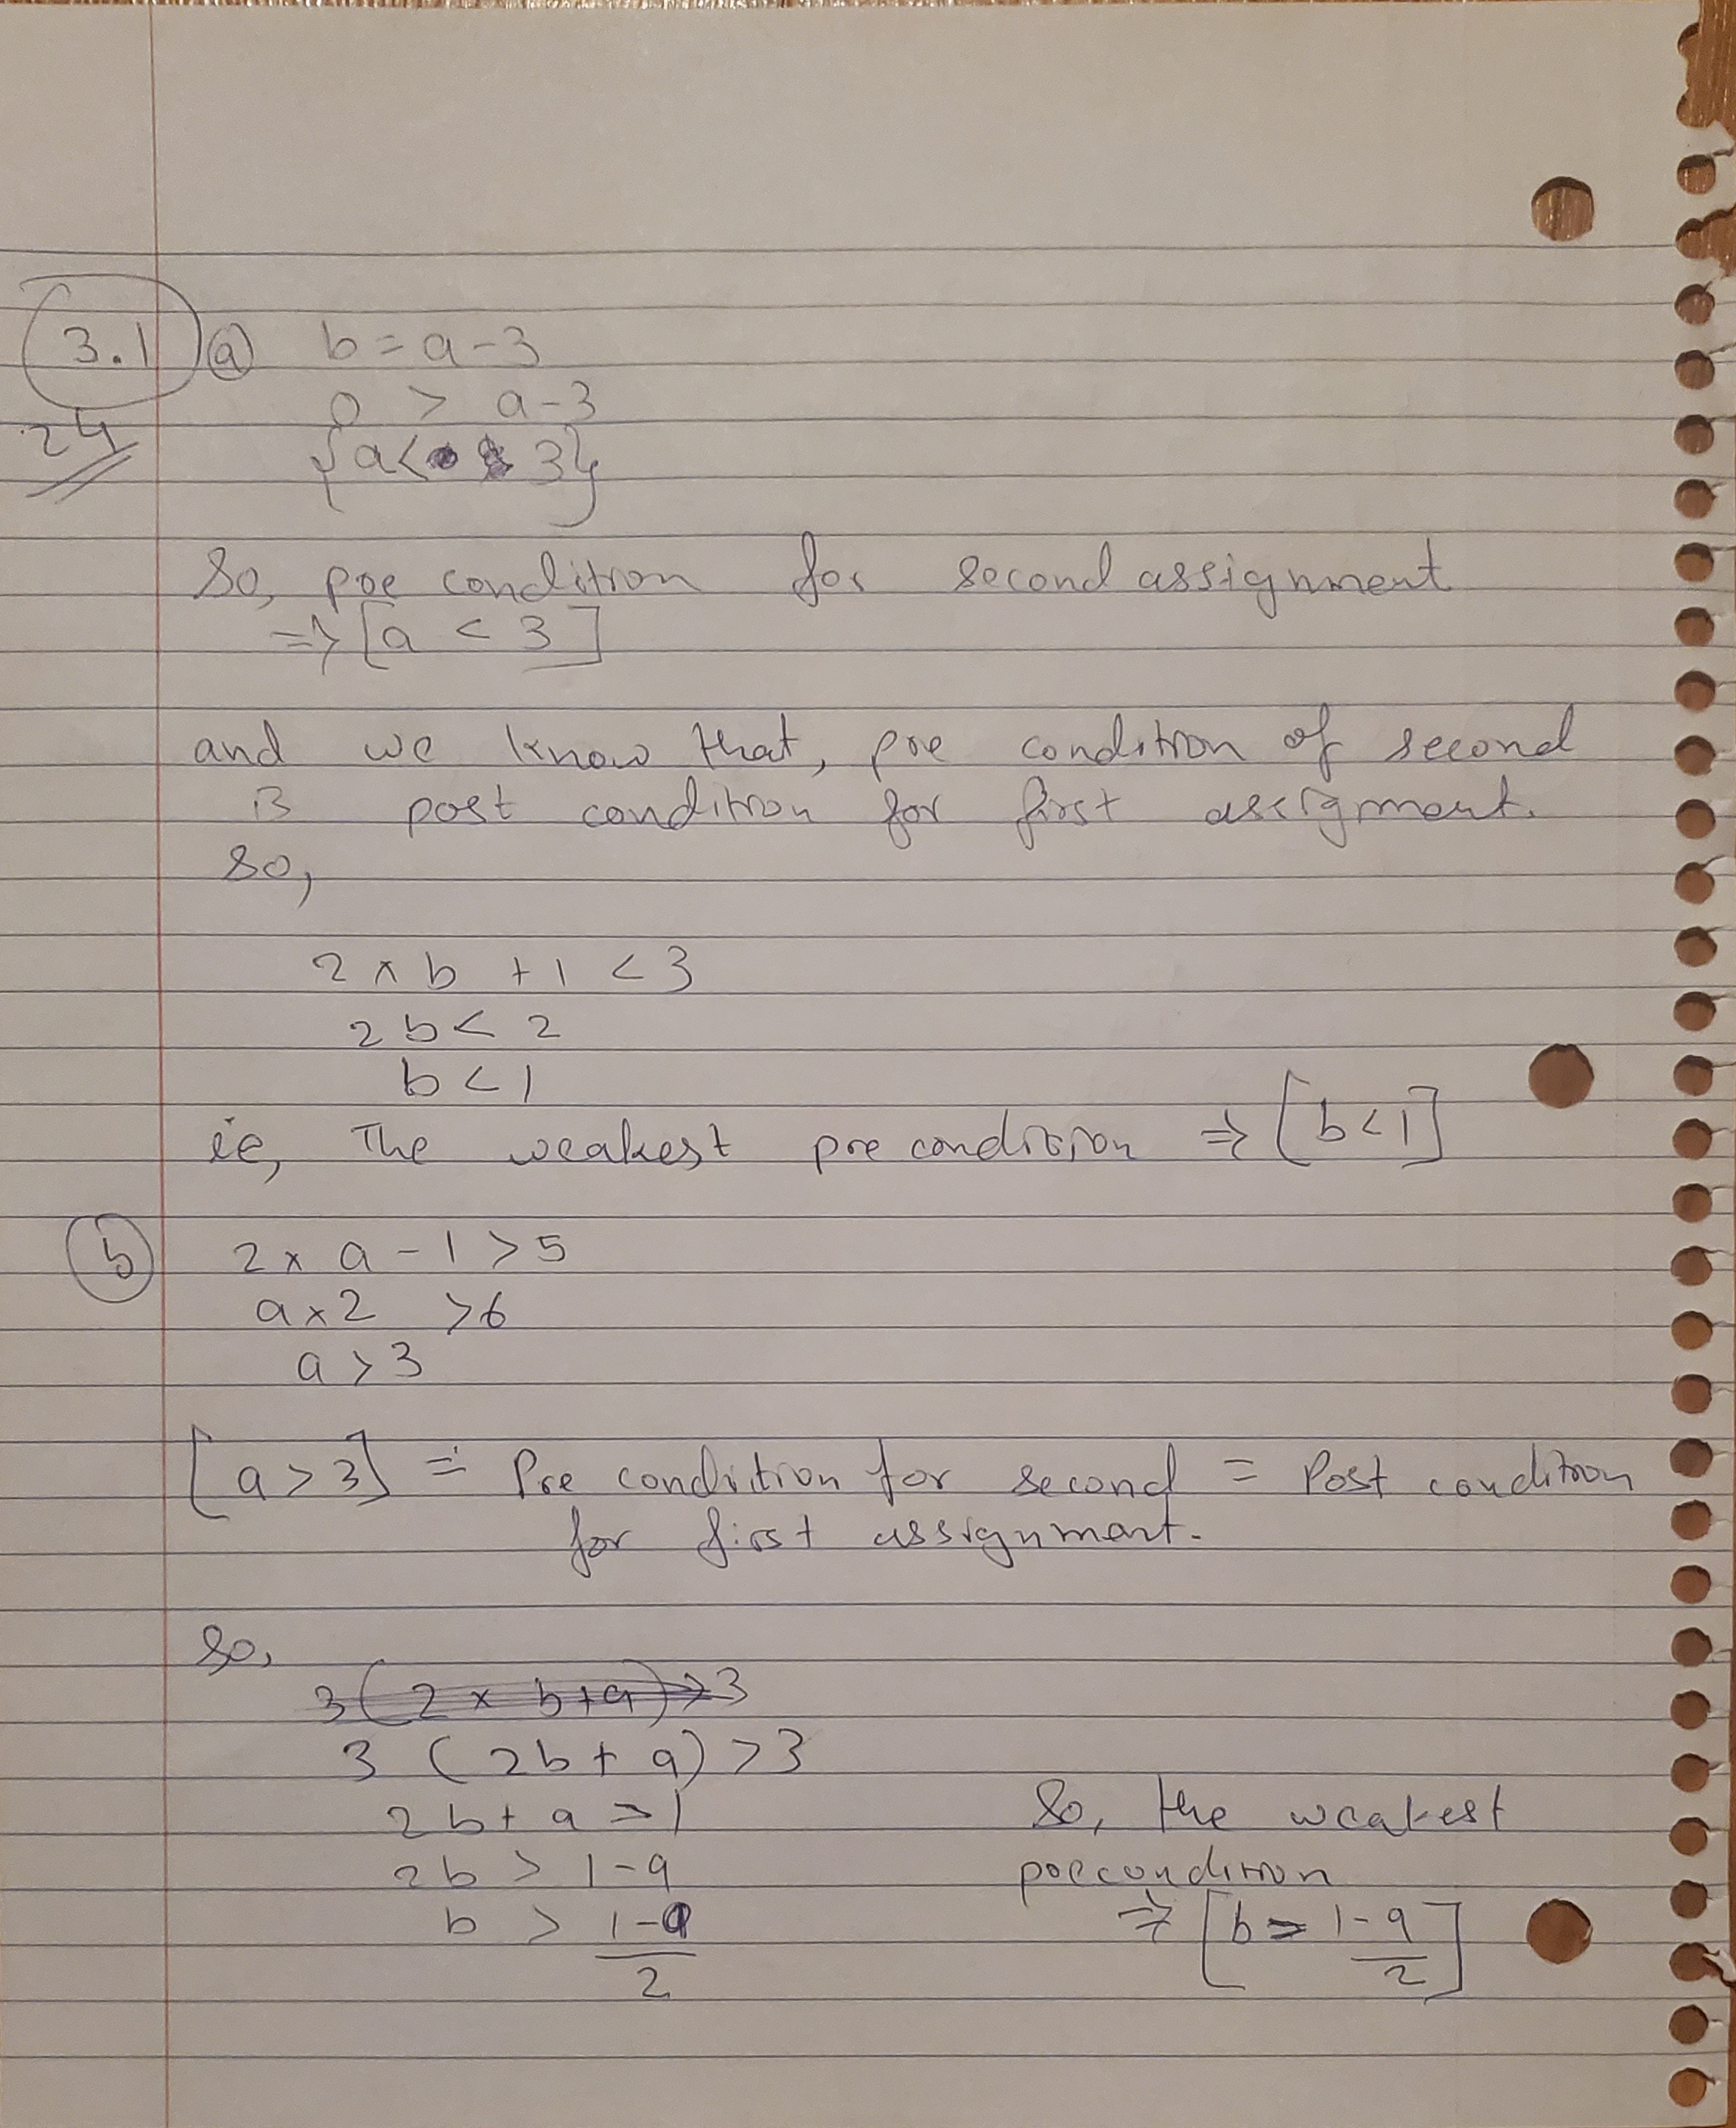 3.1 a b = a - 3
24 0 > a - 3
{a < 3}
So, pre condition for second assignment
=> [a < 3]
and we know that, pre condition of second
is post condition for first assignment.
so,
2 × b + 1 < 3
2b < 2
b < 1
ie, The weakest pre condition => [b < 1]
b 2 × a - 1 > 5
a × 2 > 6
a > 3
[a > 3] = Pre condition for second = Post condition
for first assignment.
So,
3 (2 × b + a) > 3
3 (2b + a) > 3
2b + a > 1
2b > 1 - a
b > 1 - a
2
So, the weakest
precondition
=> [b > 1 - a
2]